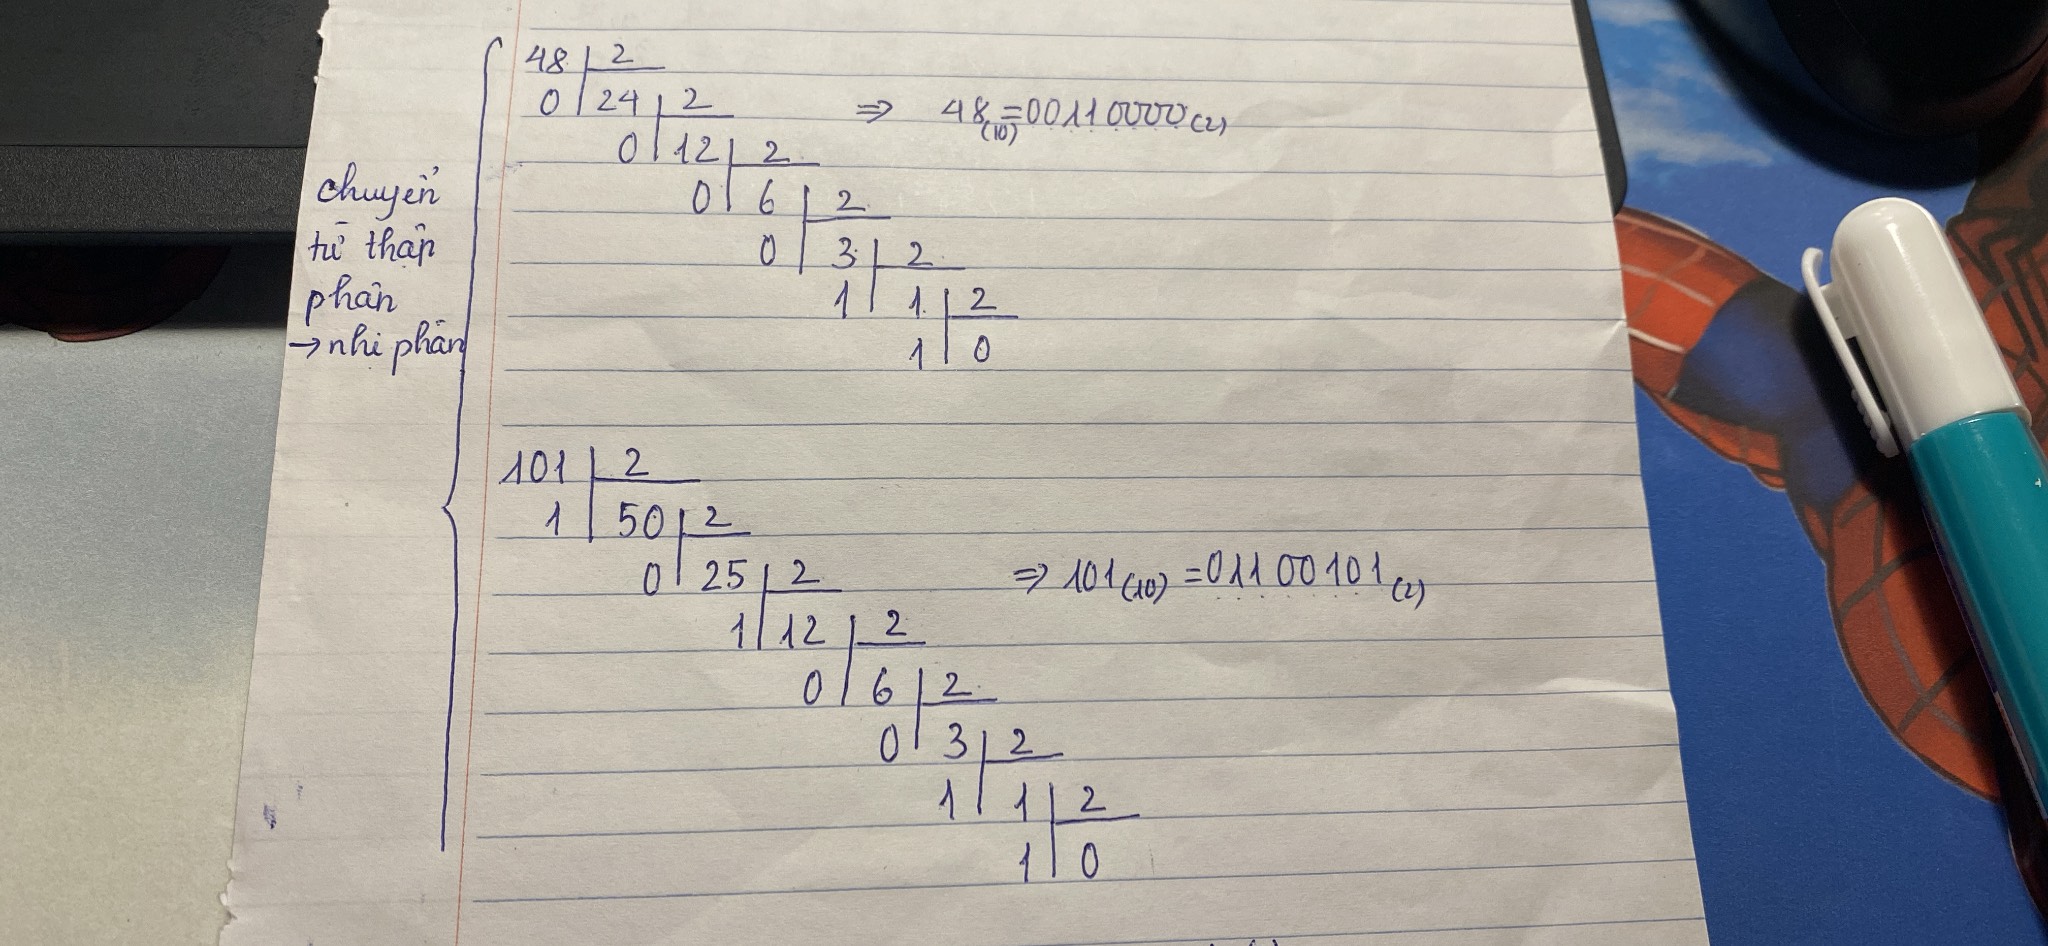 chuyển
từ thập
phân
→ nhị phân
48 2
0 24 2
0 12 2
0 6 2
0 3 2
1 1 2
1 0
⇒ 48(10) = 00110000(2)
101 2
1 50 2
0 25 2
1 12 2
0 6 2
0 3 2
1 1 2
1 0
⇒ 101(10) = 01100101(2)